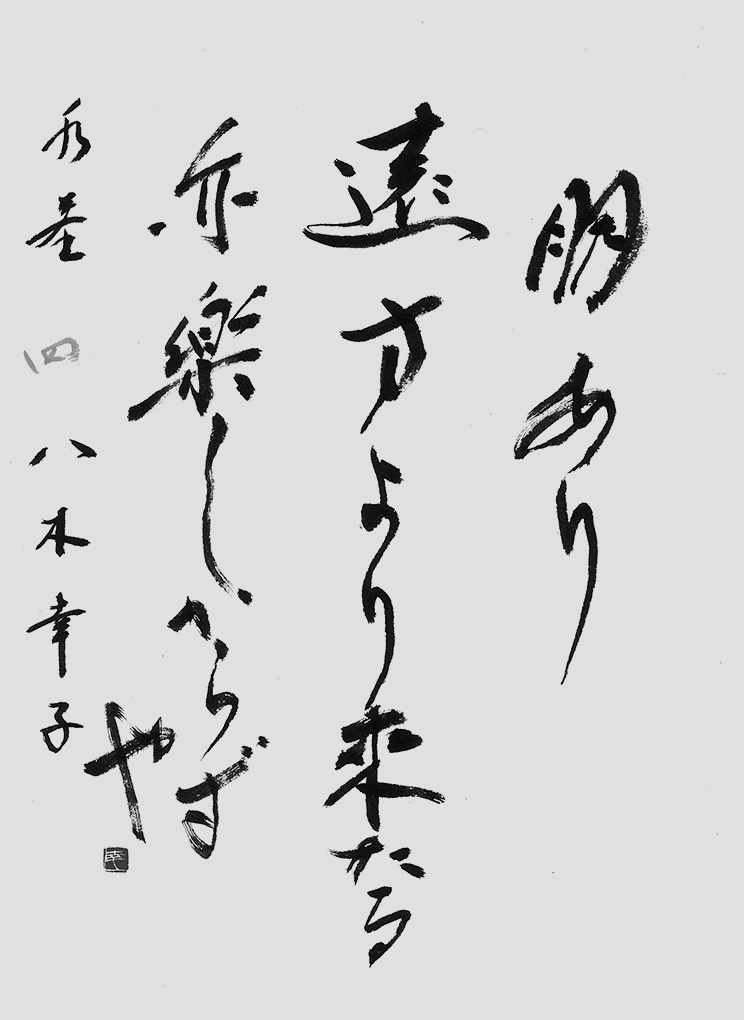 朋あり
遠方より来たる
亦楽しからず
や
永基 四 八木幸子
幸